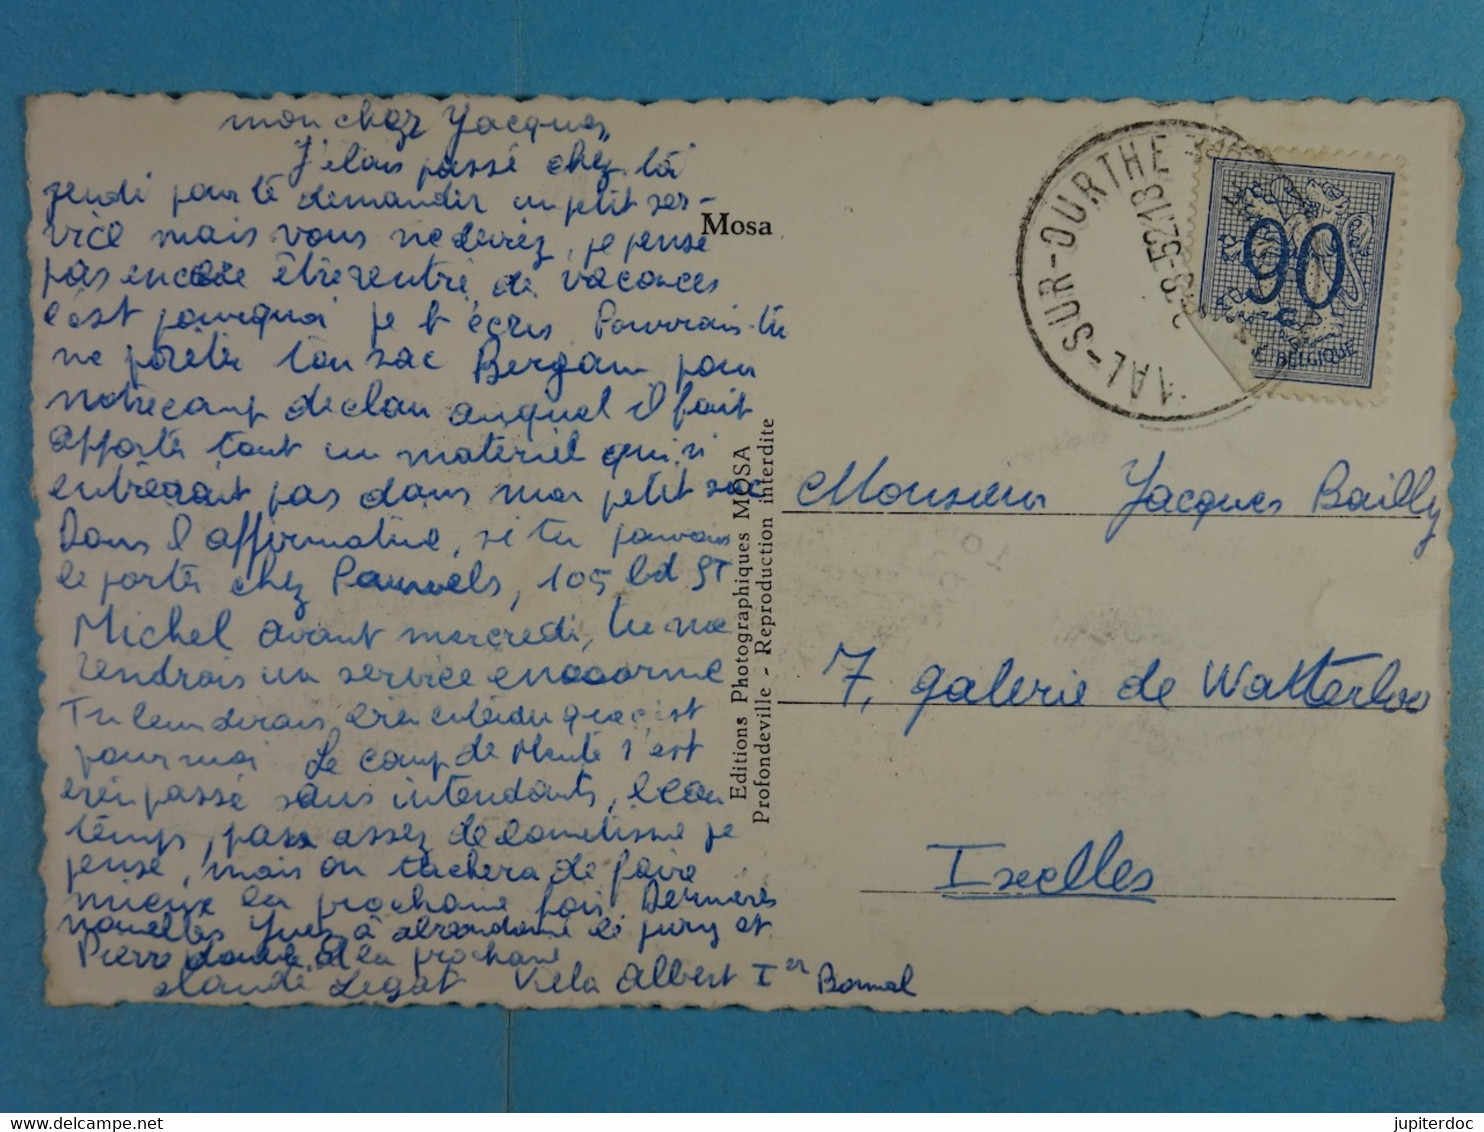 mon cher Jacques,
J'étais passé chez toi
jeudi pour te demander un petit ser-
vice mais vous ne deviez, je pense
pas encore être rentré de vacances
c'est pourquoi je t'écris Pourrais-tu
me prêter ton sac Bergam pour
notre camp de clan auquel il faut
apporter tout un materiel qui n'
entrerait pas dans mon petit sac
Dans l'affirmative, si tu pouvais
le porter chez Pauwels, 105 bd ST
Michel avant mercredi, tu me
rendrais un service enooorme
Tu viendrais, bien entendu
pour moi Le camp de s'est
bien passé sans intendants, beau
temps, pas assez de je
pense, mais on tachera de faire
mieux la prochaine fois Dernières
nouvelles Yves à abandonné le jury et
Pierre A la prochaine
Claude Legat Villa Albert Ier Bomal
Mosa
Editions Photographiques MOSA
Profondeville - Reproduction interdite
MAL-SUR-OURTHE
-8-52 18
90
BELGIQUE
Monsieur Jacques Bailly
7, galerie de Watterloo
Ixelles
delcampe.net
jupiterdoc